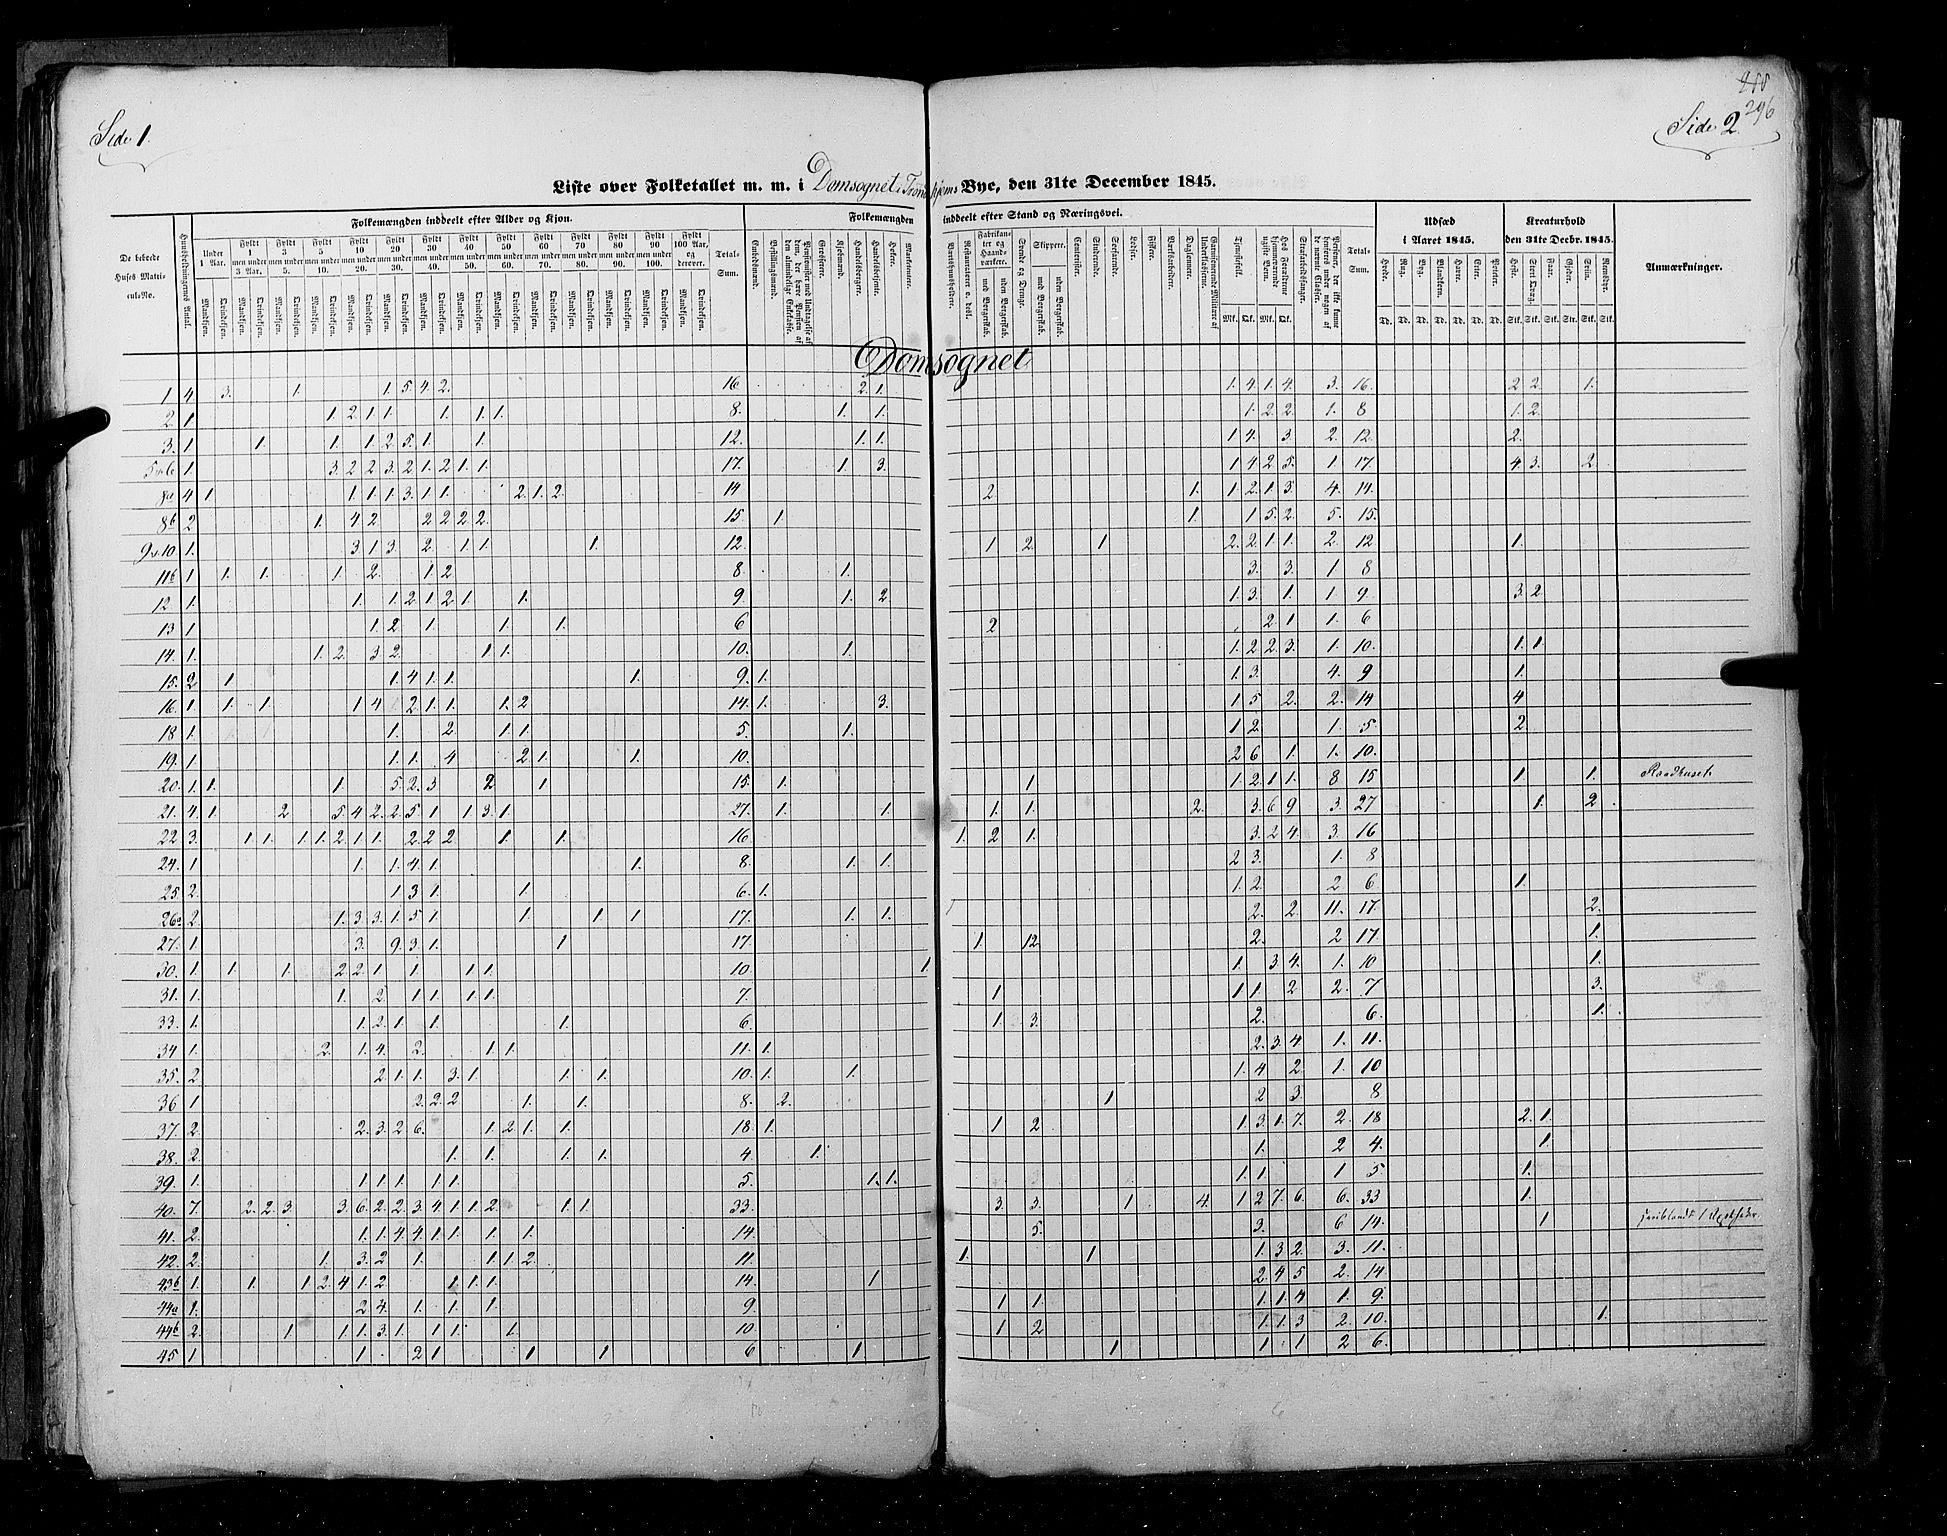 Side 1.
Side 2.
296
Liste over Folketallet m. m. i Domsognet i Trondhjems Bye, den 31te December 1845.
De bebrede Huses Matricule-No.
Huusholdningernes Antal.
Folkemængden inddeelt efter Alder og Kjøn.
Folkemængden inddeelt efter Stand og Næringsvei.
Udsæd i Aaret 1845.
Kreaturhold den 31te Decbr. 1845.
Anmærkninger.
Under 1 Aar.
Fyldt 1 men under 3 Aar.
Fyldt 3 men under 5.
Fyldt 5 men under 10.
Fyldt 10 men under 20.
Fyldt 20 men under 30.
Fyldt 30 men under 40.
Fyldt 40 men under 50.
Fyldt 50 men under 60.
Fyldt 60 men under 70.
Fyldt 70 men under 80.
Fyldt 80 men under 90.
Fyldt 90 men under 100.
Fyldt 100 Aar, og derover.
Total-Sum.
Mandkjøn. Qvindekjøn.
Embedsmænd.
Bestillingsmænd.
Grosserere.
Kjøbmænd.
Handelsborgere.
Handelsbetjente.
Høkere.
Marketentere.
Fabrikanter og Haandværkere.
med Borgerskab.
uden Borgerskab.
Svende og Drenge.
Skippere.
med Borgerskab.
uden Borgerskab.
Contorister.
Studerende.
Søefarende.
Lodser.
Fiskere.
Værksarbeidere.
Daglønnere.
Tjenestefolk.
Hos Forældrene hjemmeværende ugifte Børn.
Strafarbeidsfanger.
Total-Sum.
Hvede. Rug. Byg. Blandkorn. Havre. Erter. Poteter.
Heste. Stort Qvæg. Faar. Gjeder. Sviin. Rensdyr.
Mk. Qk. Mk. Qk.
Td. Td. Td. Td. Td. Td. Td. Stk. Stk. Stk. Stk. Stk. Stk.
Domsognet
1. 4. 3. 1. 1. 5. 4. 2. 16. 2. 1. 1. 4. 1. 4. 3. 16. 2 2. 1.
2. 1 1. 2. 1. 1. 1. 1. 1. 8. 1. 1. 1. 2. 2. 1. 8 1. 2.
3. 1 1. 1. 1. 2. 5. 1. 1. 12. 1. 1. 1 4. 3. 2. 12. 2.
5 & 6 1. 3 2 2 3. 2 1. 2 1. 1. 17. 1. 3. 1 4 2 5. 1 17. 4. 3. 2.
8a 4 1 1. 1. 1. 3. 1. 1. 2. 1. 2. 14 2. 1. 1 2. 1. 3. 4. 14.
8b 2 1. 4 2. 2 2 2 2. 15. 1. 1. 1 5. 2. 5. 15.
9 & 10 1. 3 1. 3. 2. 1. 1. 1. 12. 1 2. 1 2. 2. 1 1. 2. 12 1.
11b 1 1. 1. 1. 2. 1. 2. 8. 1. 3. 3. 1 8
12 1. 1. 1. 2. 1. 2. 1. 1. 9. 1. 2 1. 3. 1. 1 9. 3. 2.
13 1 1. 2. 1. 1. 1. 6 2 2 1 1. 6
14. 1. 1. 2. 3. 2. 1 1. 10. 1. 1. 2 2. 3. 1. 10. 1. 1.
15. 2 1 1. 4 1. 1. 1. 9. 1. 1. 3. 4. 9 1.
16. 1. 1. 1. 1 4. 2 1. 1. 1. 2 14. 1. 3. 1 5 2. 2. 14 4
18 1. 1. 2. 1. 1. 5. 1. 1 2. 1. 5. 2.
19. 1 1. 1. 4 2 1. 1. 10. 2 6 1 1. 10.
20. 1. 1. 1. 5. 2. 3 2 1. 15. 1. 1 1. 2. 1 1. 8 15 1. 1. Raadhuset.
21. 4. 1 2 5. 4 2. 2. 5 1 1. 3. 1. 27. 1. 1. 1. 1. 2. 3. 6 9 3. 27 1. 2
22 3. 1 1. 1. 1. 2. 1 1. 2. 2 2 1. 1. 16 1. 2 1. 3. 2 4. 3. 16
24. 1 1. 1. 4. 1. 1. 8. 1. 1. 2 3. 1. 8
25. 2. 1 3 1. 1. 6. 1. 1. 2. 2 6 1.
26a 2. 1. 3. 3. 1. 5. 1. 1. 1 1 17. 1. 1. 2. 2. 11. 17 2.
27. 1 3. 9. 3. 1. 1 17. 1. 12 2. 2 17. 1.
30. 1. 1. 1. 2 2. 1 1. 1. 1. 10. 1. 1. 3 4. 1. 10 1.
31. 1. 1. 2. 1. 1. 1. 1. 7. 1 1 1. 2 2. 7 3.
33. 1. 1. 2. 1. 1. 1. 6. 1. 3. 2. 6. 1.
34 1. 2. 1. 4. 2. 1 1. 11. 1. 2. 3. 4. 1. 11.
35. 2 2 1. 1. 3. 1. 1. 1. 10. 1. 1. 1. 4 2. 1. 10
36 1 2. 2. 2 1. 1. 8. 2. 1 2 3. 8
37. 2. 2. 3. 2 6. 1. 2. 1. 1. 18. 1. 1 2 1. 3. 1. 7. 2. 18 2. 1.
38. 2. 1. 1. 1. 1. 4. 1. 1. 2 4. 1
39. 1. 1. 1. 1. 1. 1. 5. 1. 1. 1. 1. 1 5 1.
40. 7. 2. 2. 3. 3. 6. 2. 2. 3. 4. 1. 1. 2. 1. 1. 33. 3. 3. 1 4. 1 2 7. 6. 6. 33 1.
41. 2. 1. 1. 4. 4. 1. 1. 1. 1. 14. 5. 3. 6 14. 1
42. 2. 1. 3. 2 1. 1. 1. 2. 11. 1. 1 1. 3 2. 3. 11.
43b 1. 1. 1 2. 4. 1. 2. 1. 1. 1. 14. 1 2. 4 5 2. 14
44a 1. 2 4. 1. 1. 1. 9. 1 1. 1. 1. 4 1. 9.
44b 2. 1. 1 1. 3. 1. 1. 1. 1. 10. 1 2 1. 1. 3 2. 10. 1.
45 1. 1. 2 1. 1 1. 6 1 1 1 1 2 6.